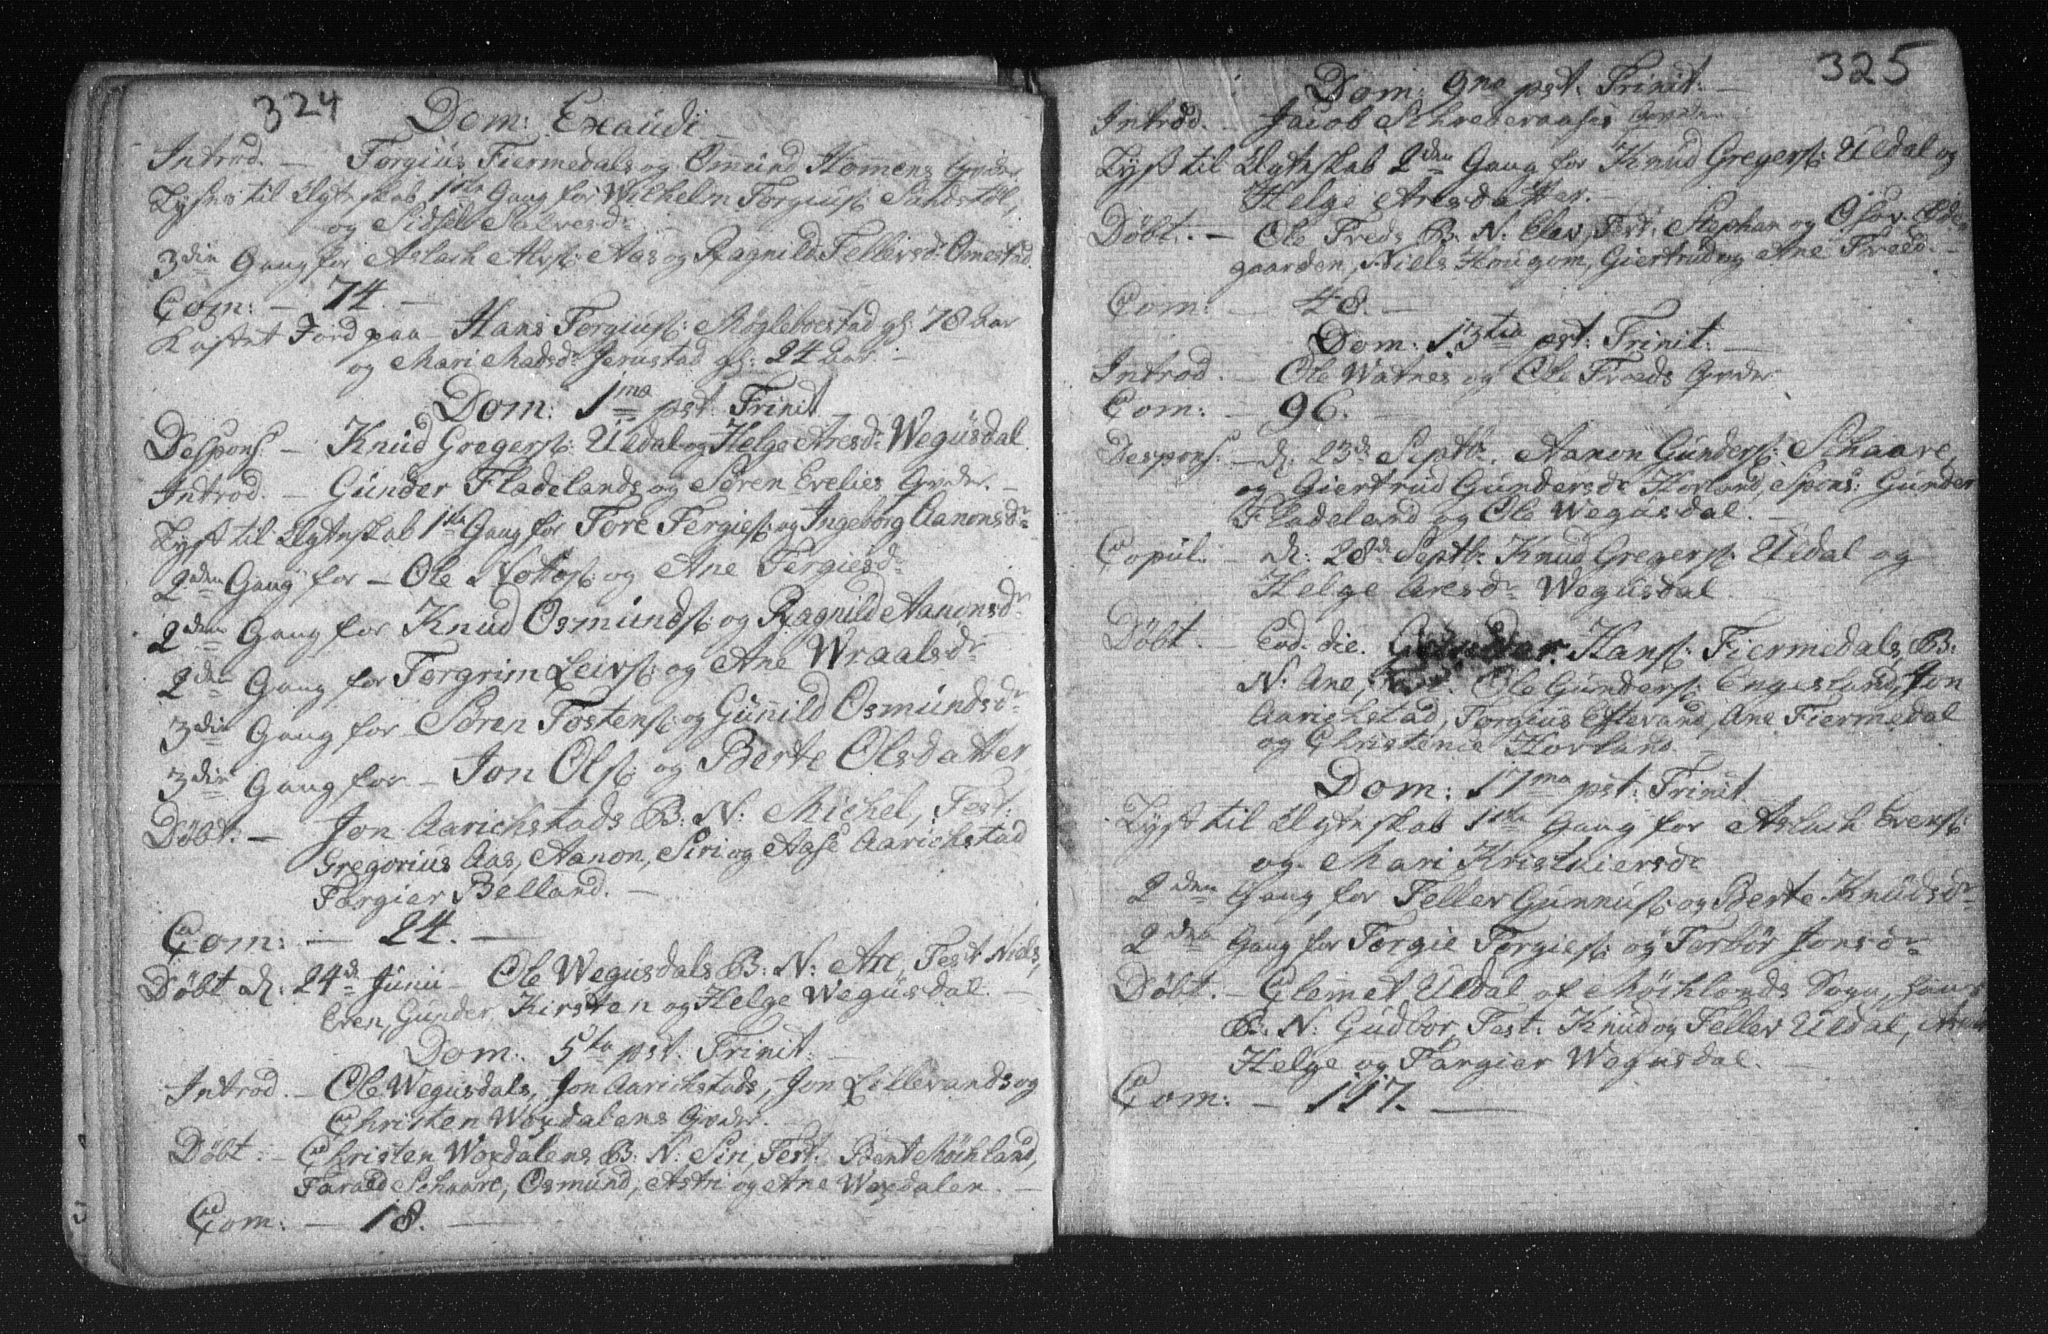 324
Dom: Exaudi
Introd. — Torgius Fiermedals og Omund Homens Qvder.
Lyses til Ægteskab 1ste Gang for Wilhelm Torgiuss: Sandstøl,
og Sidsel Salvesdr
3die Gang for Aslach Alvs: Aas og Ragnild Tellevsdr Omestad.
Com: — 74. —
Kastet Jord paa — Hans Torgiuss: Møglebostad gl: 78 Aar
og Mari Madsdr Jerustad gl: 24 Aar. —
Dom: 1ma pst: Trinit
Despons. — Knud Gregers: Uldal og Helge Aresdr Wegusdal
Introd. — Gunder Fladelands og Søren Evelies Qvder. —
Lyst til Ægteskab 1ste Gang for Tore Tergies: og Ingeborg Aanonsdr
2den Gang for — Ole Nottos: og Ane Tergiesdr
2den Gang for Knud Osmunds: og Ragnild Aanonsdr
2den Gang for Torgrim Leivs: og Ane Wraalsdr
3die Gang for Søren Tostens: og Gunild Osmundsdr
3die Gang for — Jon Ols: og Berte Olsdatter
Døbt: — Jon Aarichstads B: N: Michel, Test:
Gregorius Aas, Aanon, Siri og Aase Aarichstad
Targier Belland. —
Com: — 24. —
Døbt d: 24de Junii — Ole Wegusdals B: N: Are, Test Niels,
Even, Gunder Kirsten og Helge Wegusdal. —
Dom: 5ta pst: Trinit: —
Introd. — Ole Wegusdals, Jon Aarichstads, Jon Lillevands og
Christen Woxdalens Qvder. —
Døbt: — Christen Woxdalens B: N: Siri, Test: Bent Møchland,
Tarald Schaare, Osmund, Astri og Ane Woxdalen. —
Com: — 18. —
325
Dom: 9na pst: Trinit: —
Introd. — Jacob Schreberaases Qvinde
Lyst til Ægteskab 2den Gang for Knud Gregers: Uldal og
Helge Aresdatter. —
Døbt. — Ole Freds B: N: Olav, Test: Stephan og Osov
gaarden, Niels Hougom, Giertrud og Ane Fraed. —
Com: — 48. —
Dom: 13tia pst: Trinit: —
Introd. — Ole Watnes og Ole Froeds Qvder.
Com: — 96. —
Despons: — d: 23de Septbr. Aanon Gunders: Schaare,
og Giertrud Gundersdr Hovland, Spons: Gunder
Fladeland og Ole Wegusdal. —
Copul. — d: 28de Septbr: Knud Gregers: Uldal og
Helge Aresdr Wegusdal —
Døbt. — Eod: die. Hans: Fiermedals, B:
N: Ane, Ole Gunders: Engesland, Jon
Aarichstad, Torgius Eftevand, Ane Fiermedal
og Christenie Hovland. —
Dom: 17ma pst: Trinit
Lyst til Ægteskab 1ste Gang for Aslach Evens:
og Mari Kristuiersdr
2den Gang for Tellev Gunnus: og Berte Knudsdr
2den Gang for Torgie Torgies: og Torbør Jonsdr
Døbt. — Clemet Uldal af Møchlands Sogn, hans
B: N: Gudbor, Test: Knud og Tellev Uldal,
Helge og Targier Wegusdal. —
Com: — 117. —